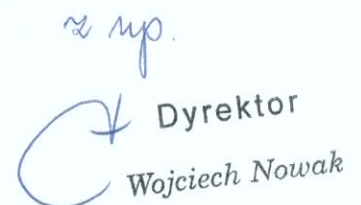 z up.
Dyrektor
Wojciech Nowak